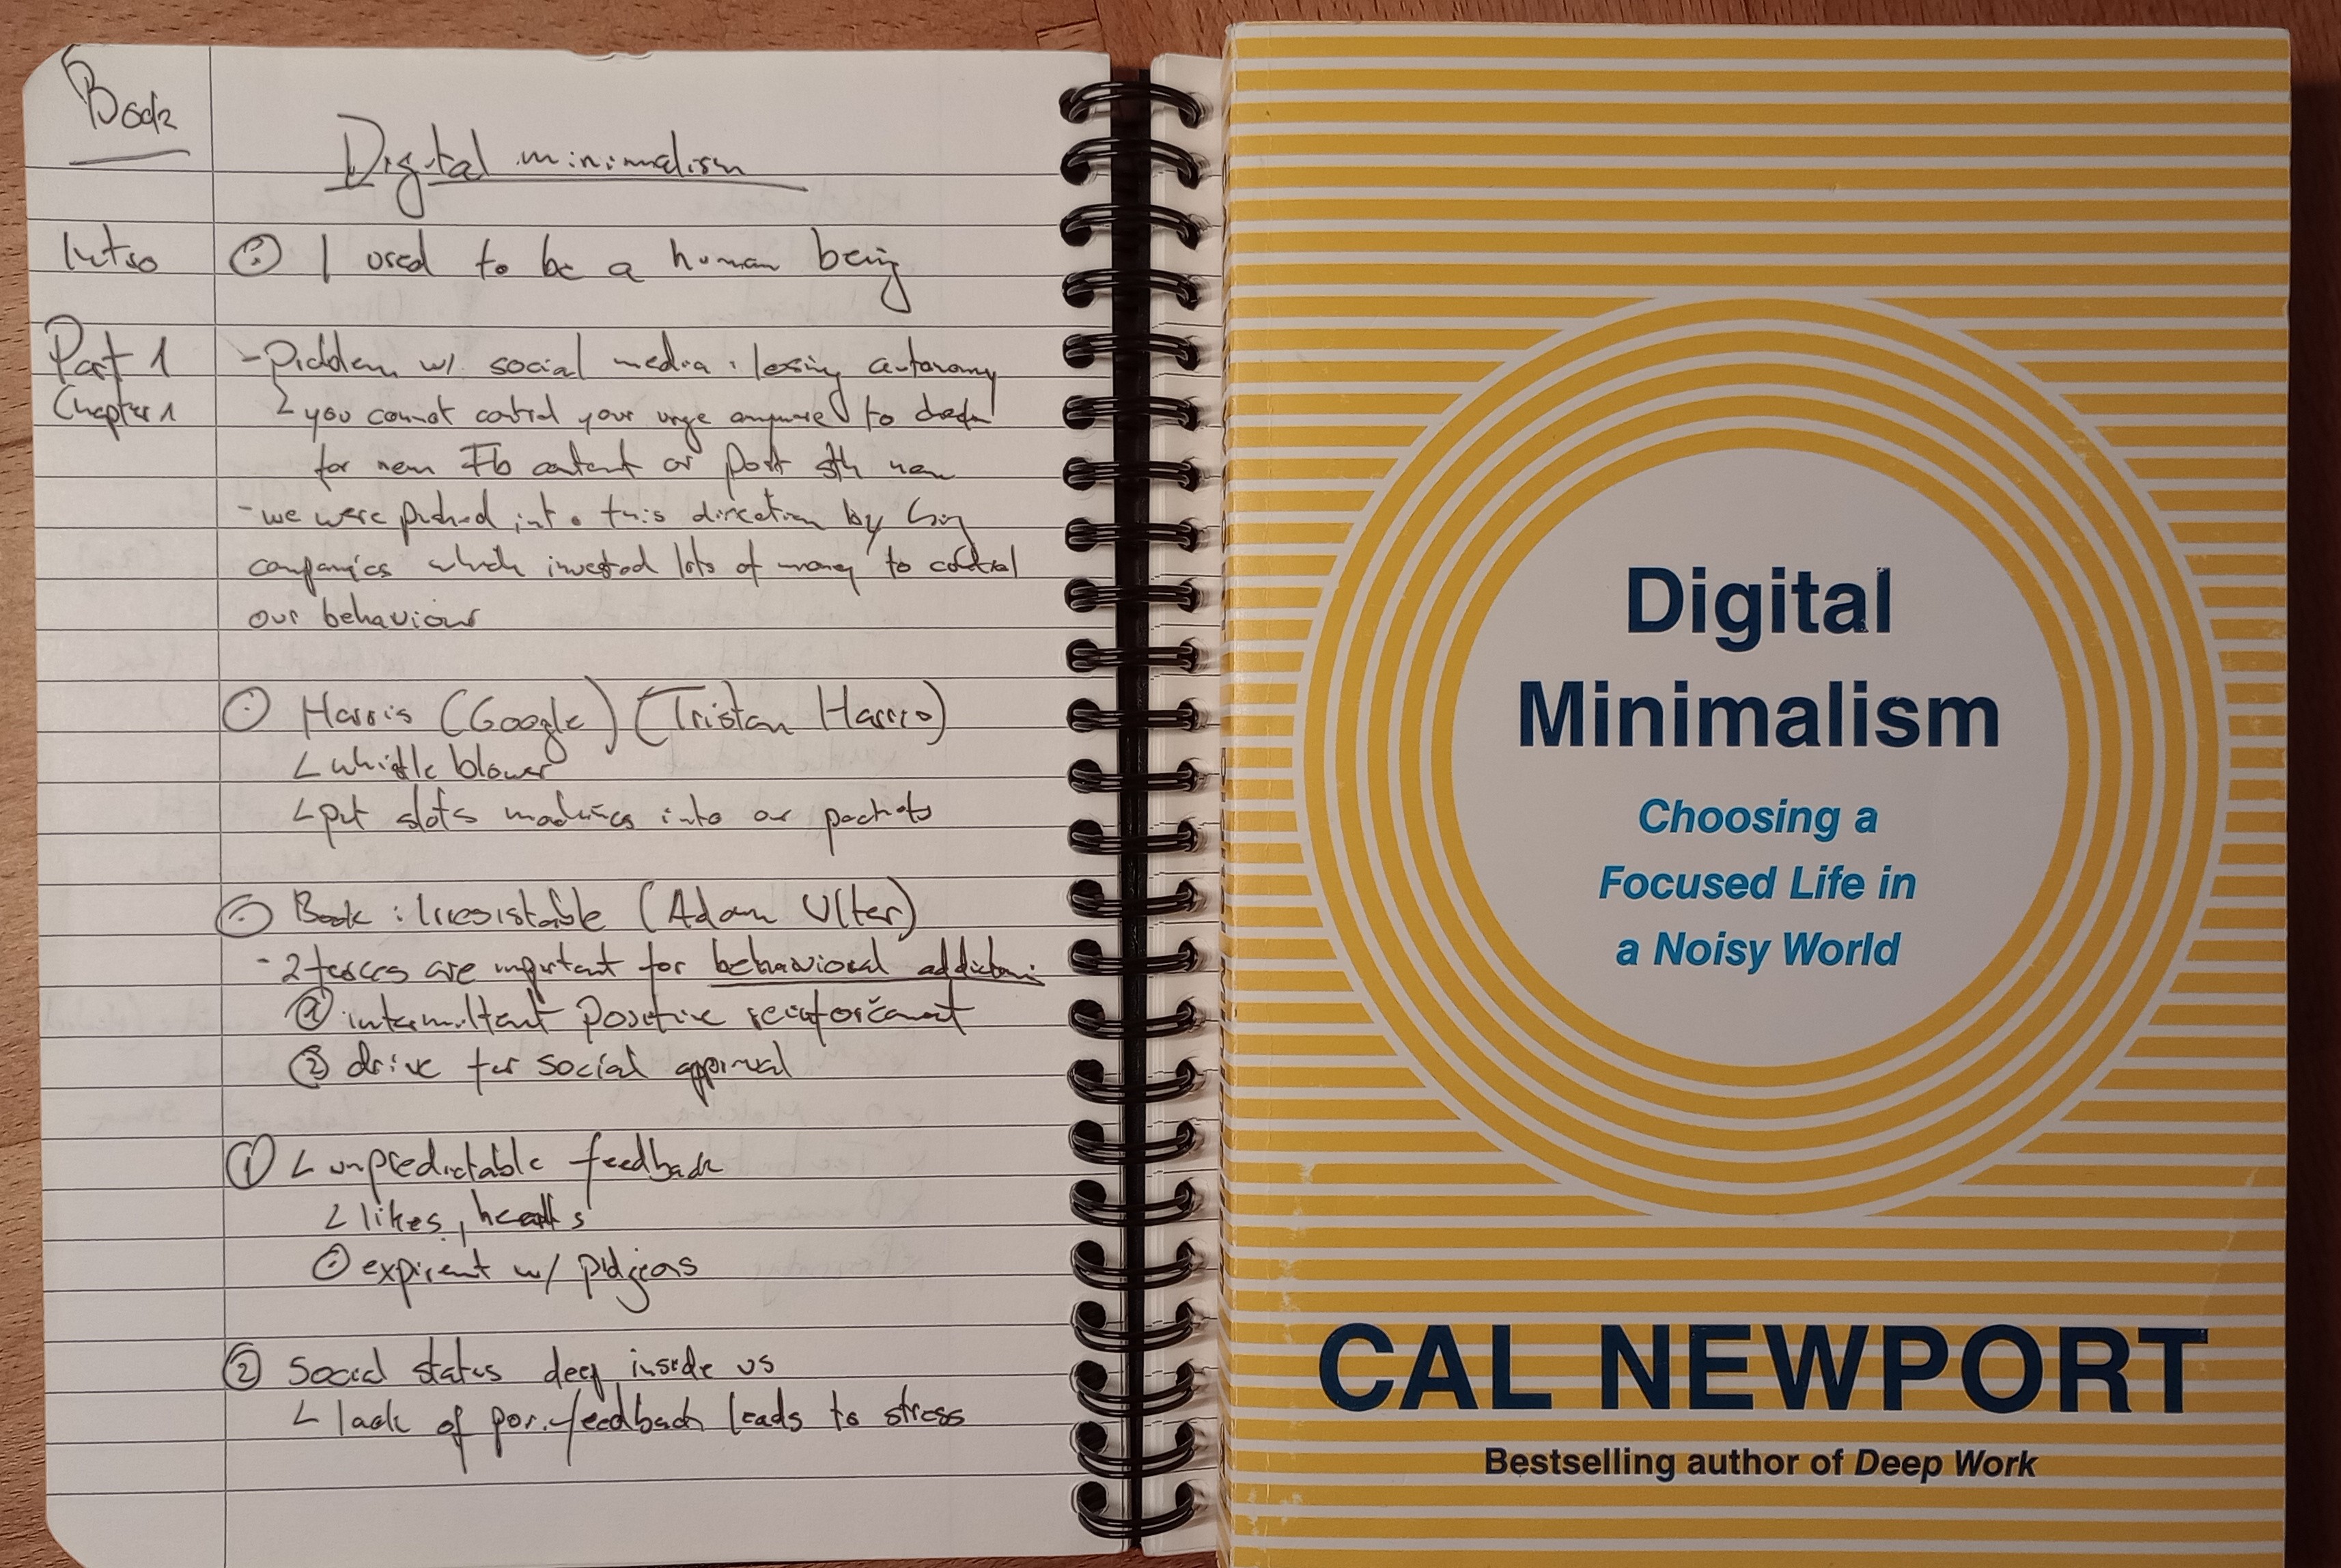 Book
Digital minimalism
Intro
I used to be a human being
Part 1
Chapter 1
- Problem w/ social media : losing autonomy
you cannot control your urge anymore to check
for new Fb content or post sth new
- we were pushed into this direction by big
companies which invested lots of money to control
our behaviour
Harris (Google) (Tristan Harris)
whistle blower
put slots machines into our pockets
Book : Irresistable (Adam Ulter)
- 2 forces are important for behavioral addiction:
① intermittent positive reinforcement
② drive for social approval
① unpredictable feedback
likes, hearts
expirent w/ pidgeons
② Social status deep inside us
lack of pos. feedback leads to stress
Digital
Minimalism
Choosing a
Focused Life in
a Noisy World
CAL NEWPORT
Bestselling author of Deep Work